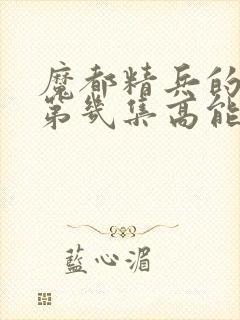 魔都精兵的
第幾集高能
藍心湄